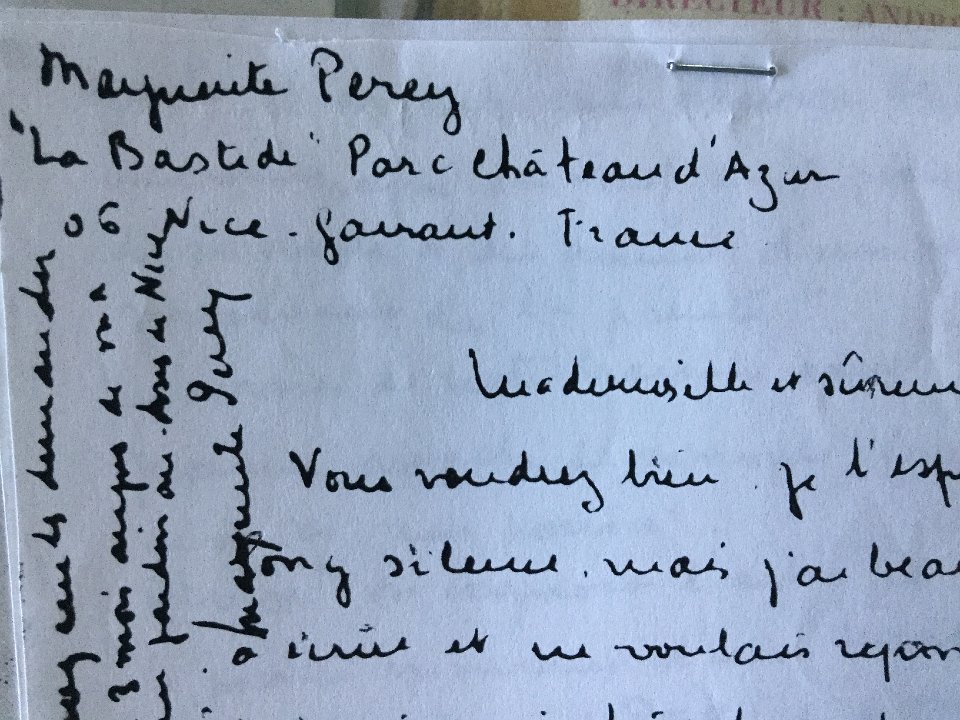 DIRECTEUR : ANDRE
Marguerite Perey
"La Bastide" Parc Château d'Azur
06 Nice. Gairaut. France
Mademoiselle et sûreme
Vous voudrez bien, je l'esp
long silence, mais j'ai beau
écrire et ne voulais
demander
3 mois auprès de ma
pardon au-dessus de Nice
Marguerite Perey